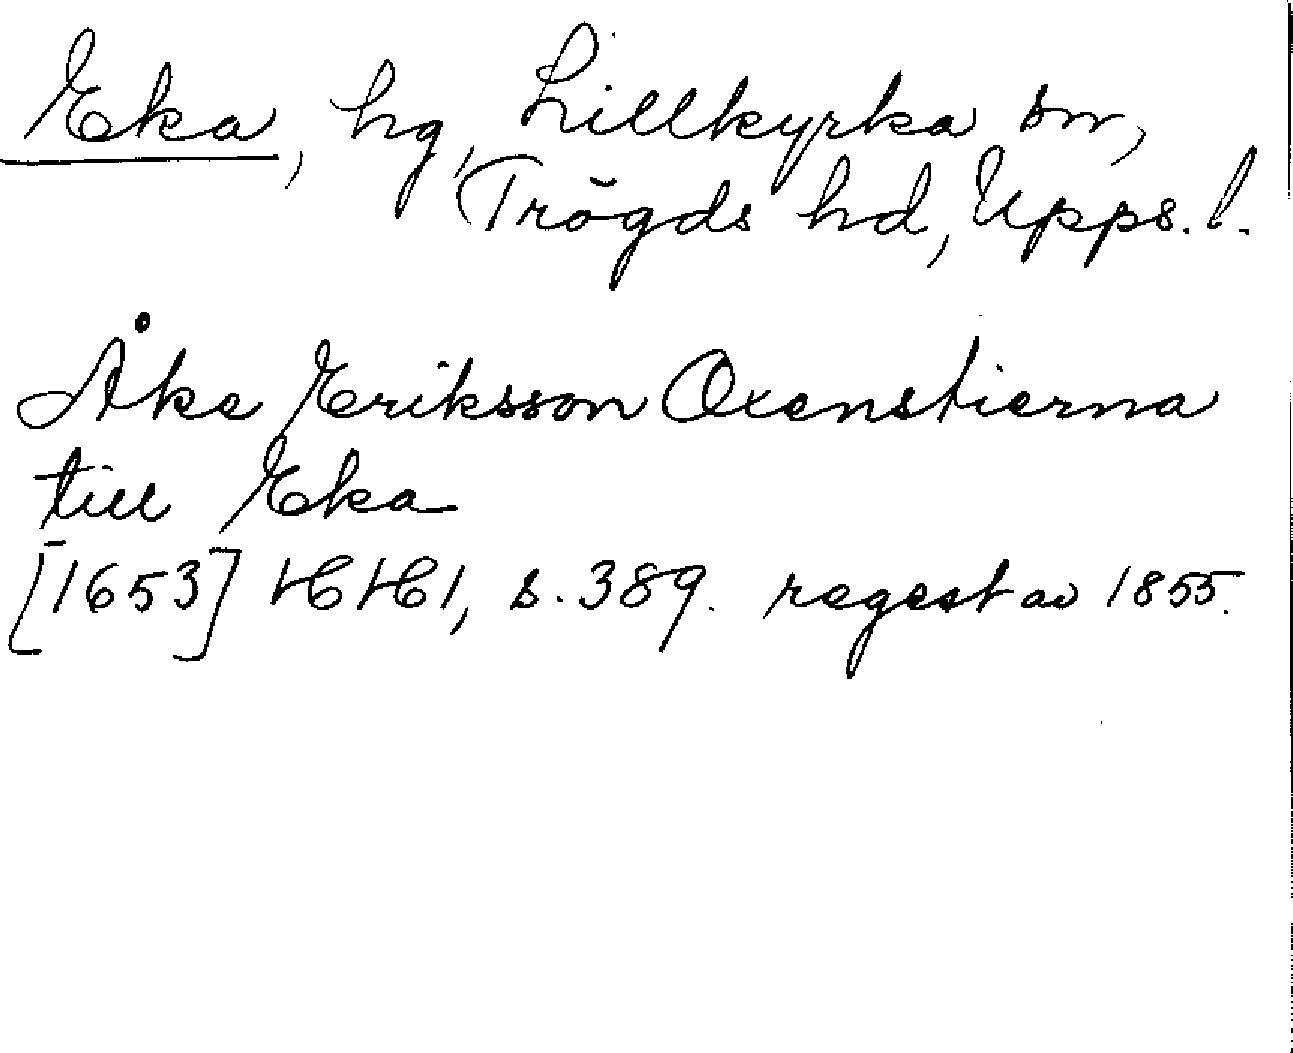 Eka, hg, Lillkyrka sn,
Trögds hd, Upps. l.
Åke Eriksson Oxenstierna
till Eka
[1653] HH1, s. 389. regest av 1855.